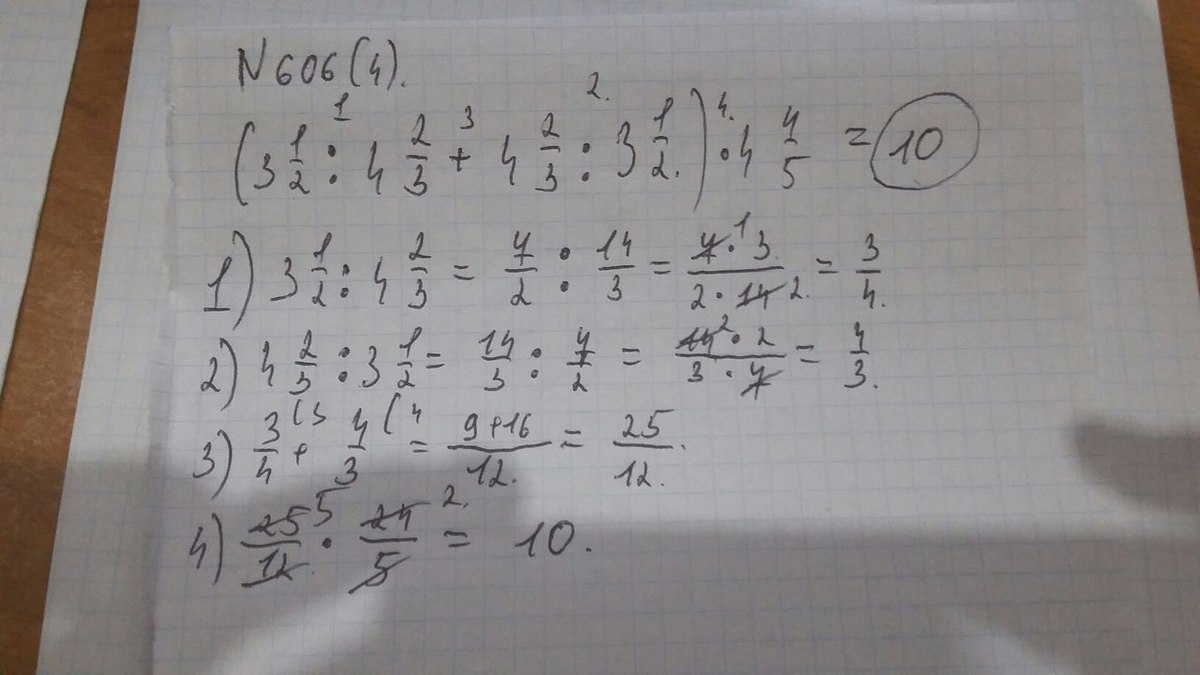 N 606(4).
(3 1/2 : 4 2/3 + 4 2/3 : 3 1/2.) · 4 4/5 = 10
1) 3 1/2 : 4 2/3 = 7/2 : 14/3 = 7·3/2·14 = 3/4.
2) 4 2/3 : 3 1/2 = 14/3 : 7/2 = 14·2/3·7 = 4/3.
3) 3/4 + 4/3 = 9+16/12. = 25/12.
4) 25/12 · 24/5 = 10.